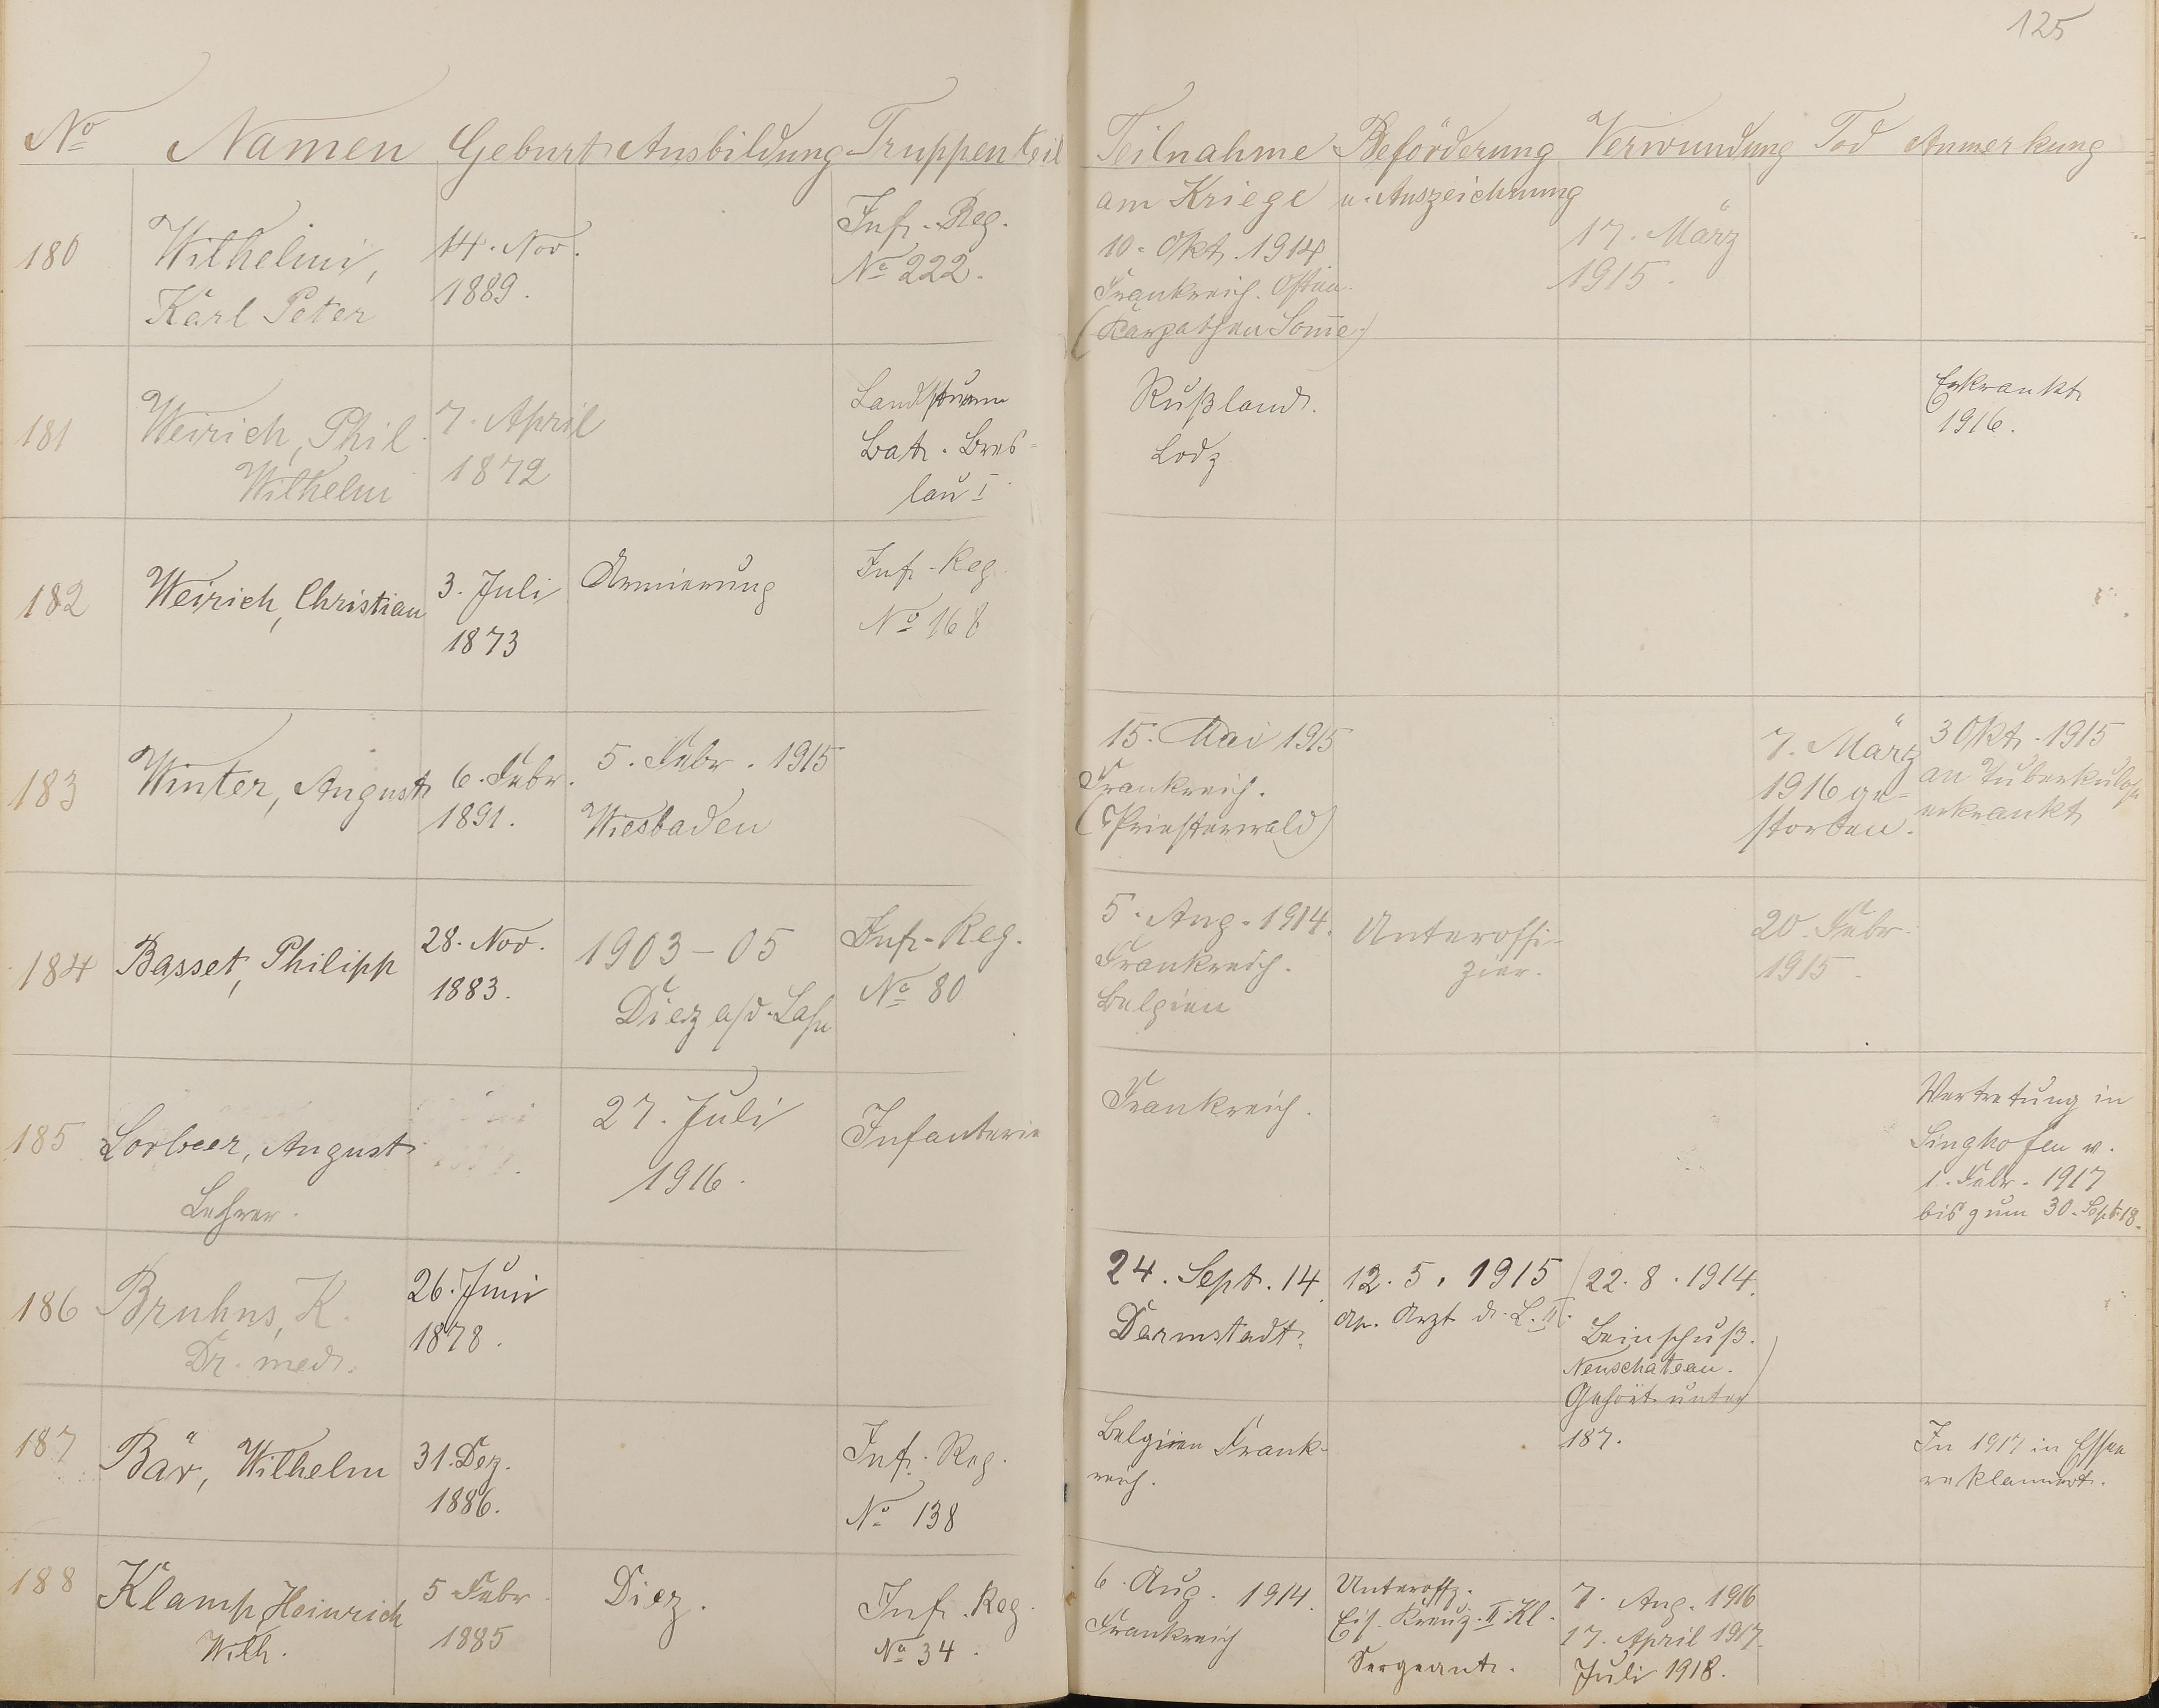 125
No Namen Geburt Ausbildung Truppenteil Teilnahme am Kriege Beförderung u. Auszeichnung Verwundung Tod Anmerkung
180
Wilhelmi,
Karl Peter
14. Nov.
1889.
Inf.-Reg.
No 222.
10. Okt. 1914
Frankreich. Osten.
(Karpathen Somme.)
17. März
1915.
181
Weirich, Phil.
Wilhelm
7. April
1872
Landsturm
Bat. Bres-
lau I.
Rußland.
Lodz
Erkrankt
1916.
182
Weirich, Christian
3. Juli
1873
Armierung
Inf.-Reg.
No 168
183
Winter, August
6. Febr.
1891.
5. Febr. 1915
Wiesbaden
15. Mai 1915
Frankreich.
(Priesterwald)
7. März
1916 ge-
storben.
3 Okt. 1915
an Tuberkulose
erkrankt
184
Basset, Philipp
28. Nov.
1883.
1903-05
Diez a/d. Lahn
Inf.-Reg.
No 80
5. Aug. 1914.
Frankreich.
Belgien
Unteroffi-
zier.
20. Febr.
1915.
185
Lorbeer, August
Lehrer.
27. Juli
1916.
Infanterie
Frankreich.
Vertretung in
Singhofen v.
1. Febr. 1917
bis zum 30. Sept. 18.
186
Bruhns, K.
Dr. med.
26. Juni
1878.
24. Sept. 14.
Darmstadt.
12. 5. 1915
Arzt d. L. II.
(22. 8. 1914.
Beinschuß.
Neuschateau.
Gehört unter
187.)
187
Bär, Wilhelm
31. Dez.
1886.
Inf. Reg.
No 138
Belgien Frank-
reich.
In 1917 in Essen
reklamiert.
188
Klamp, Heinrich
Wilh.
5 Febr.
1885
Diez.
Inf. Reg.
No 34.
6. Aug. 1914.
Frankreich
Unteroffz.
Eis. Kreuz. II. Kl.
Sergeant.
7. Aug. 1916
17. April 1917.
Juli 1918.